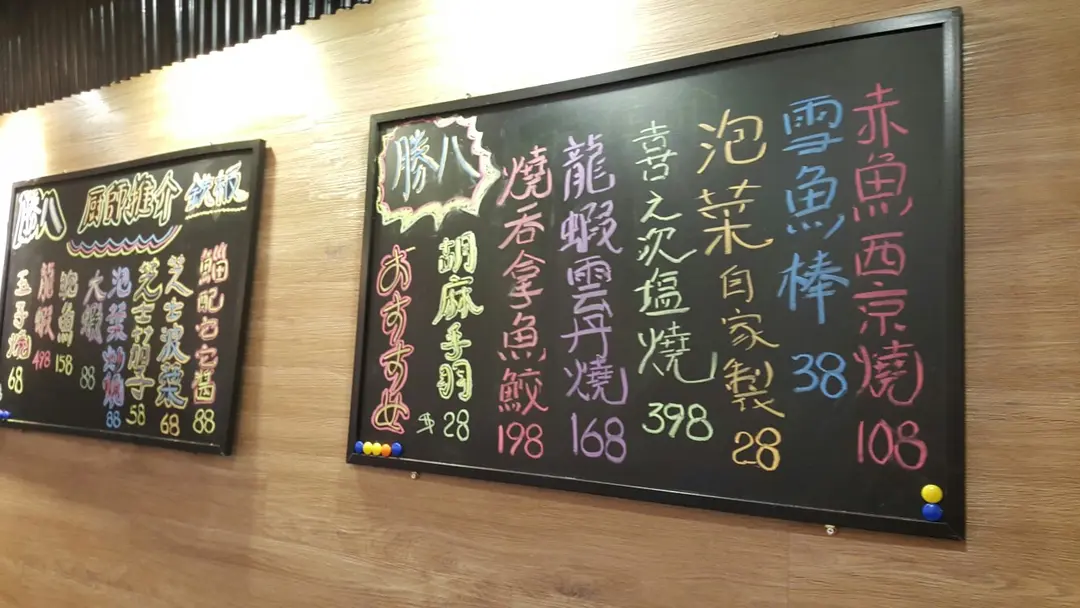 勝八 厨師推介 鉄板
鯔配它它醬 88
芝士波菜 68
芝士茄子 58
泡菜炒焗 88
大蝦 88
鮑魚 158
龍蝦 498
玉子燒 68
勝八
おすすめ
赤魚西京燒 108
雪魚棒 38
泡菜自家製 28
喜之次塩燒 398
龍蝦雲丹燒 168
燒吞拿魚鮫 198
胡麻手羽 $28